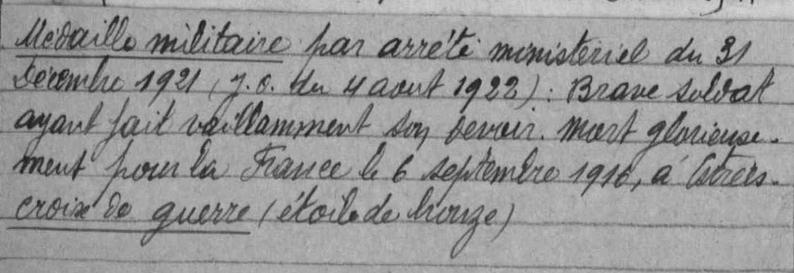 Médaille militaire par arrêté ministériel du 31
Décembre 1921 (J.O. du 4 aout 1922): Brave soldat
ayant fait vaillamment son devoir. Mort glorieuse-
ment pour la France le 6 septembre 1916, à Estrées.
croix de guerre (étoile de bronze)